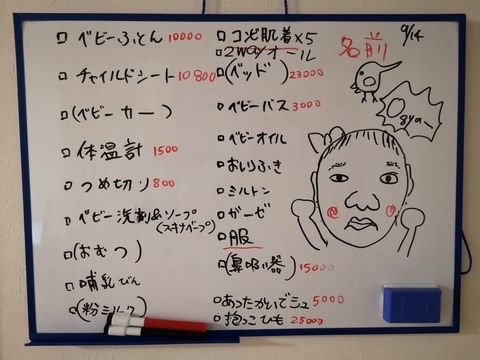 □ ベビーふとん 10000
□ チャイルドシート 10800
□ (ベビーカー)
□ 体温計 1500
□ つめ切り 800
□ ベビー洗剤&ソープ
(スキナベーブ)
□ (おむつ)
□ 哺乳びん
□ (粉ミルク)
□ コンビ肌着×5
□ 2wayオール
□ (ベッド) 23000
□ ベビーバス 3000
□ ベビーオイル
□ おしりふき
□ ミルトン
□ ガーゼ
□ 服
□ (鼻吸い器) 15000
□ あったかいでミュ 5000
□ 抱っこひも 25000
名前
9/14